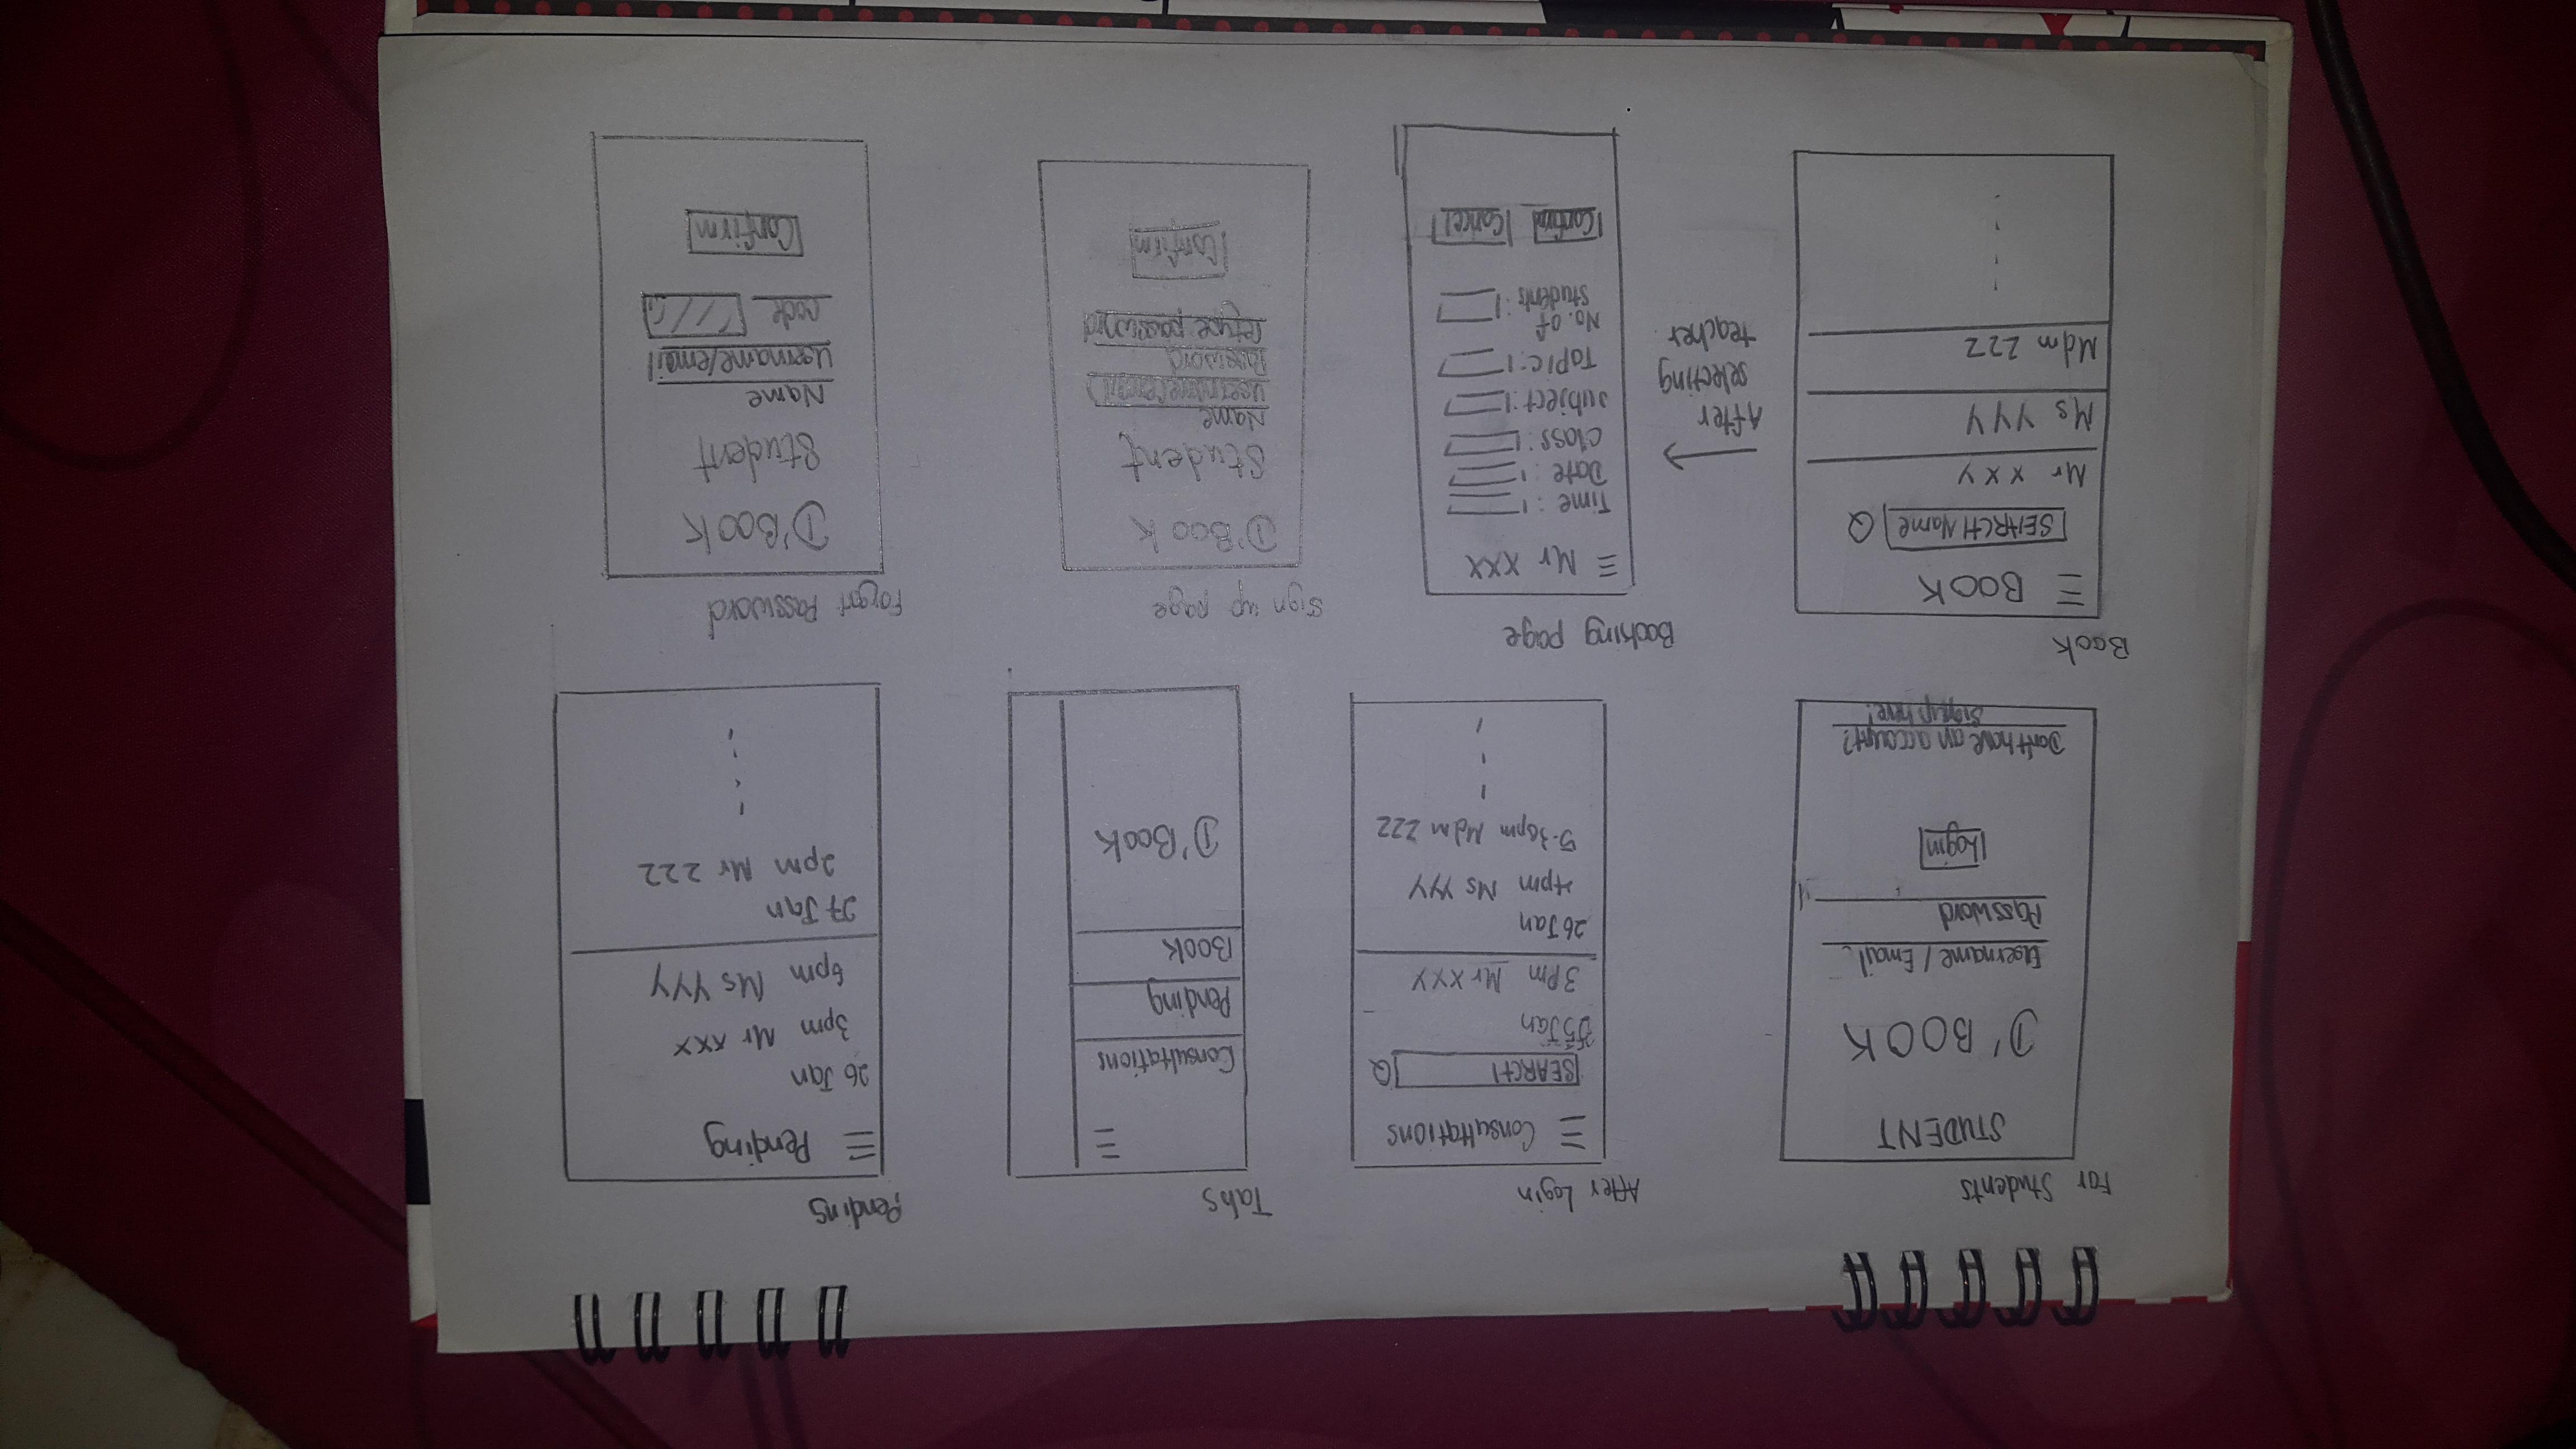 For Students
STUDENT
D'BOOK
Username / Email
Password
Login
Don't have an account?
Sign up here!
After Login
Consultations
SEARCH
Jan
3pm Mr XXY
26 Jan
4pm Ms YYY
5.30pm Mdm ZZZ
Tabs
Consultations
Pending
Book
D'Book
Pending
Pending
26 Jan
3pm Mr XXX
6pm Ms YYY
27 Jan
2pm Mr ZZZ
Book
BOOK
SEARCH Name
Mr XXY
Ms YYY
Mdm ZZZ
After
selecting
teacher
Booking page
Mr XXX
Time :
Date :
Class:
Subject:
Topic:
No. of
Students:
Confirm Cancel
Sign up page
D'Book
Student
Name
Username(email)
Password
retype password
Confirm
Forgot Password
D'BOOK
Student
Name
Username/email
code
Confirm